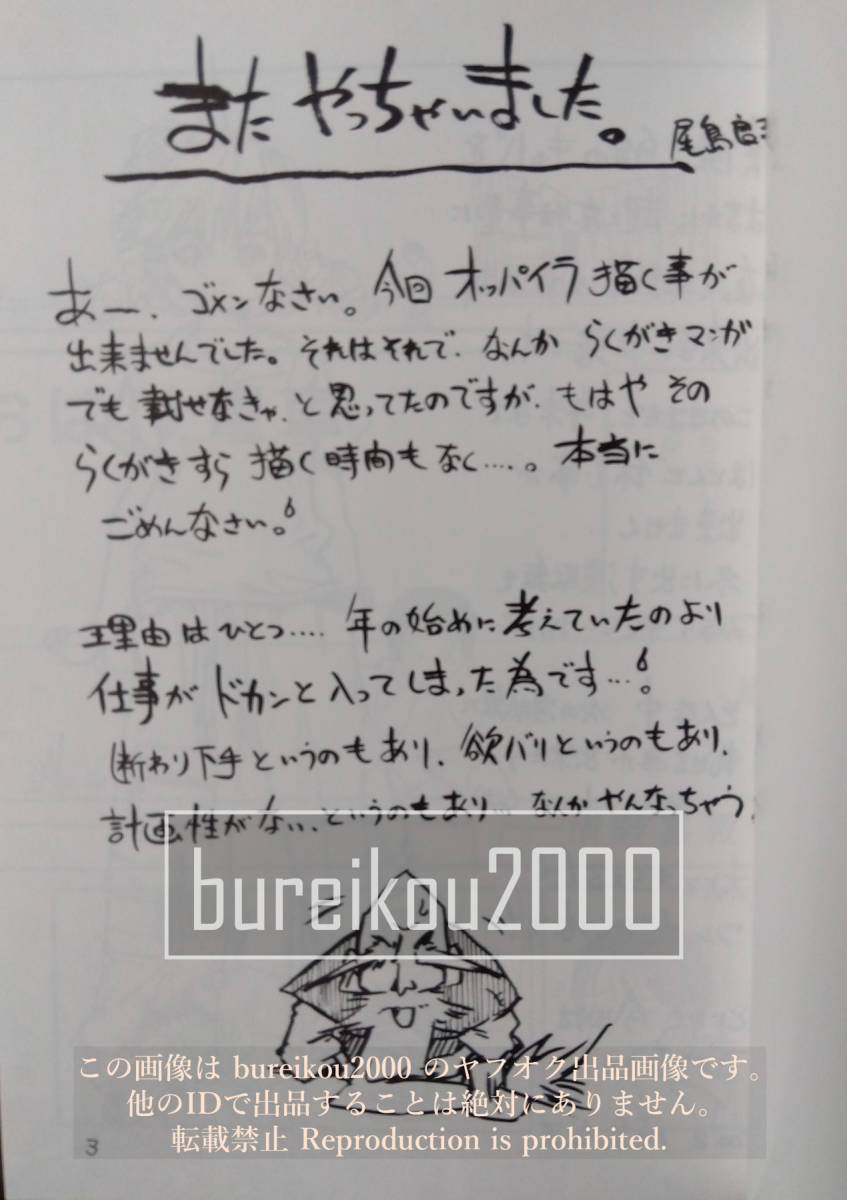 また やっちゃいました。
尾島
あー、ゴメンなさい。今回 オッパイラ 描く事が
出来ませんでした。それはそれで、なんか らくがきマンガ
でも 載せなきゃ、と思ってたのですが、もはや その
らくがきすら 描く時間もなく‥‥。本当に
ごめんなさい。
理由は ひとつ‥‥ 年の始めに 考えていたのより
仕事が ドカンと 入ってしまった為です‥‥。
断わり下手というのもあり、欲バリというのもあり、
計画性がない、というのもあり なんか やんなっちゃう
bureikou2000
この画像は bureikou2000 のヤフオク出品画像です。
他のIDで出品することは絶対にありません。
転載禁止 Reproduction is prohibited.
3